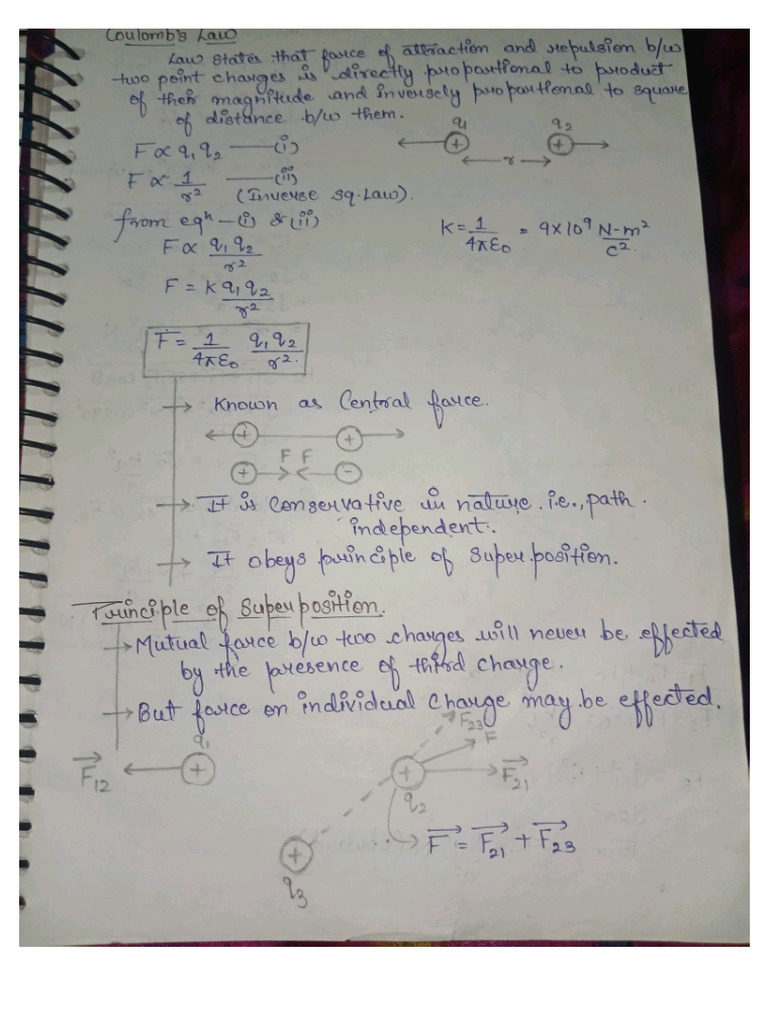 Coulomb's Law
Law states that force of attraction and repulsion b/w
two point charges is directly proportional to product
of their magnitude and inversely proportional to square
of distance b/w them.
q1 q2
+ +
r
F ∝ q1 q2 —(i)
F ∝ 1/r² —(ii)
(Inverse sq. Law).
from eqn —(i) & (ii)
K = 1/4πε0 = 9×10⁹ N-m²/c²
F ∝ q1 q2/r²
F = K q1 q2/r²
F = 1/4πε0 q1 q2/r².
→ Known as Central force.
+ +
F F
+ −
→ It is Conservative in nature. i.e., path
independent.
→ It obeys principle of Super position.
Principle of Superposition.
→ Mutual force b/w two charges will never be effected
by the presence of third charge.
→ But force on individual charge may be effected.
q1 F23 F
F12 + + F21
q2
F = F21 + F23
+
q3